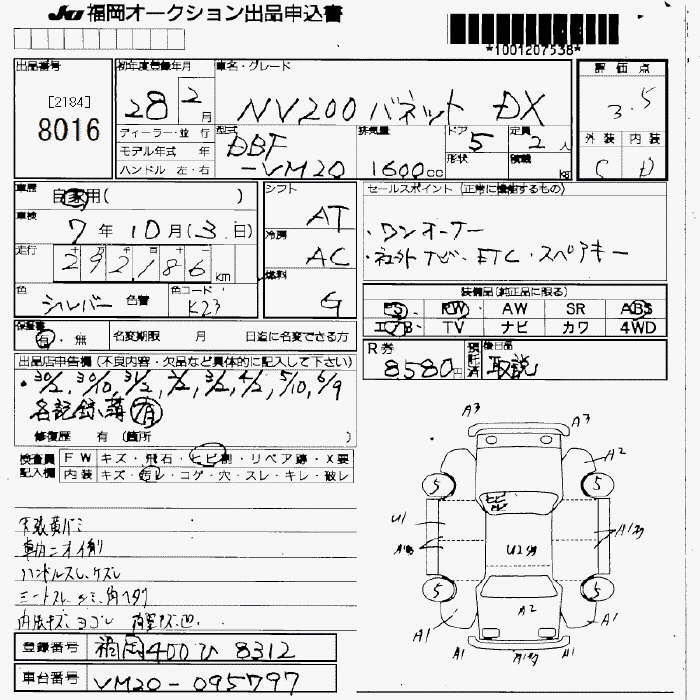 JU 福岡オークション出品申込書
*1001207538*
出品番号
[2184]
8016
初年度登録年月
28 2月
車名・グレード
NV200 バネット DX
評価点
3.5
外装 内装
C D
ディーラー・並行
モデル年式 年
ハンドル 左・右
型式
DBF
-VM20
排気量
1600cc
ドア
5
形状
定員
2人
積載
kg
車歴
自家用( )
車検
7年10月(3日)
走行
292186km
色
シルバー 色替
色コード
K23
シフト
AT
冷房
AC
燃料
G
セールスポイント(正常に機能するもの)
・ワンオーナー
・社外ナビ・ETC・スペアキー
装備品(純正品に限る)
PS PW AW SR ABS
エアB TV ナビ カワ 4WD
保証書
有・無
名変期限 月 日迄に名変できる方
R券
8580円
預託済
後日品
取説
出品店申告欄(不良内容・欠品など具体的に記入して下さい)
・30/2, 30/10, 31/2, 2/2, 3/2, 4/2, 5/10, 6/9
名記録簿 有
修復歴 有(箇所 )
検査員記入欄
FW キズ・飛石・ヒビ割・リペア跡・X要
内装 キズ・汚レ・コゲ・穴・スレ・キレ・破レ
車内ニオイ有リ
ハンドルスレ、ケズレ
A3
A3
A2
5
5
ヒビ
U1
A1
5
5
A2
A1
A1
A1
A1
登録番号
福岡400ひ 8312
車台番号
VM20-095797